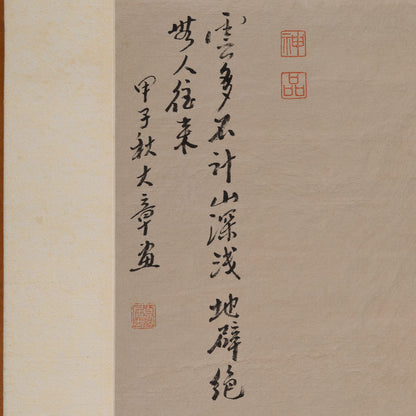 神品
雲多不計山深淺地僻絕
無人往来
甲子秋大章畫